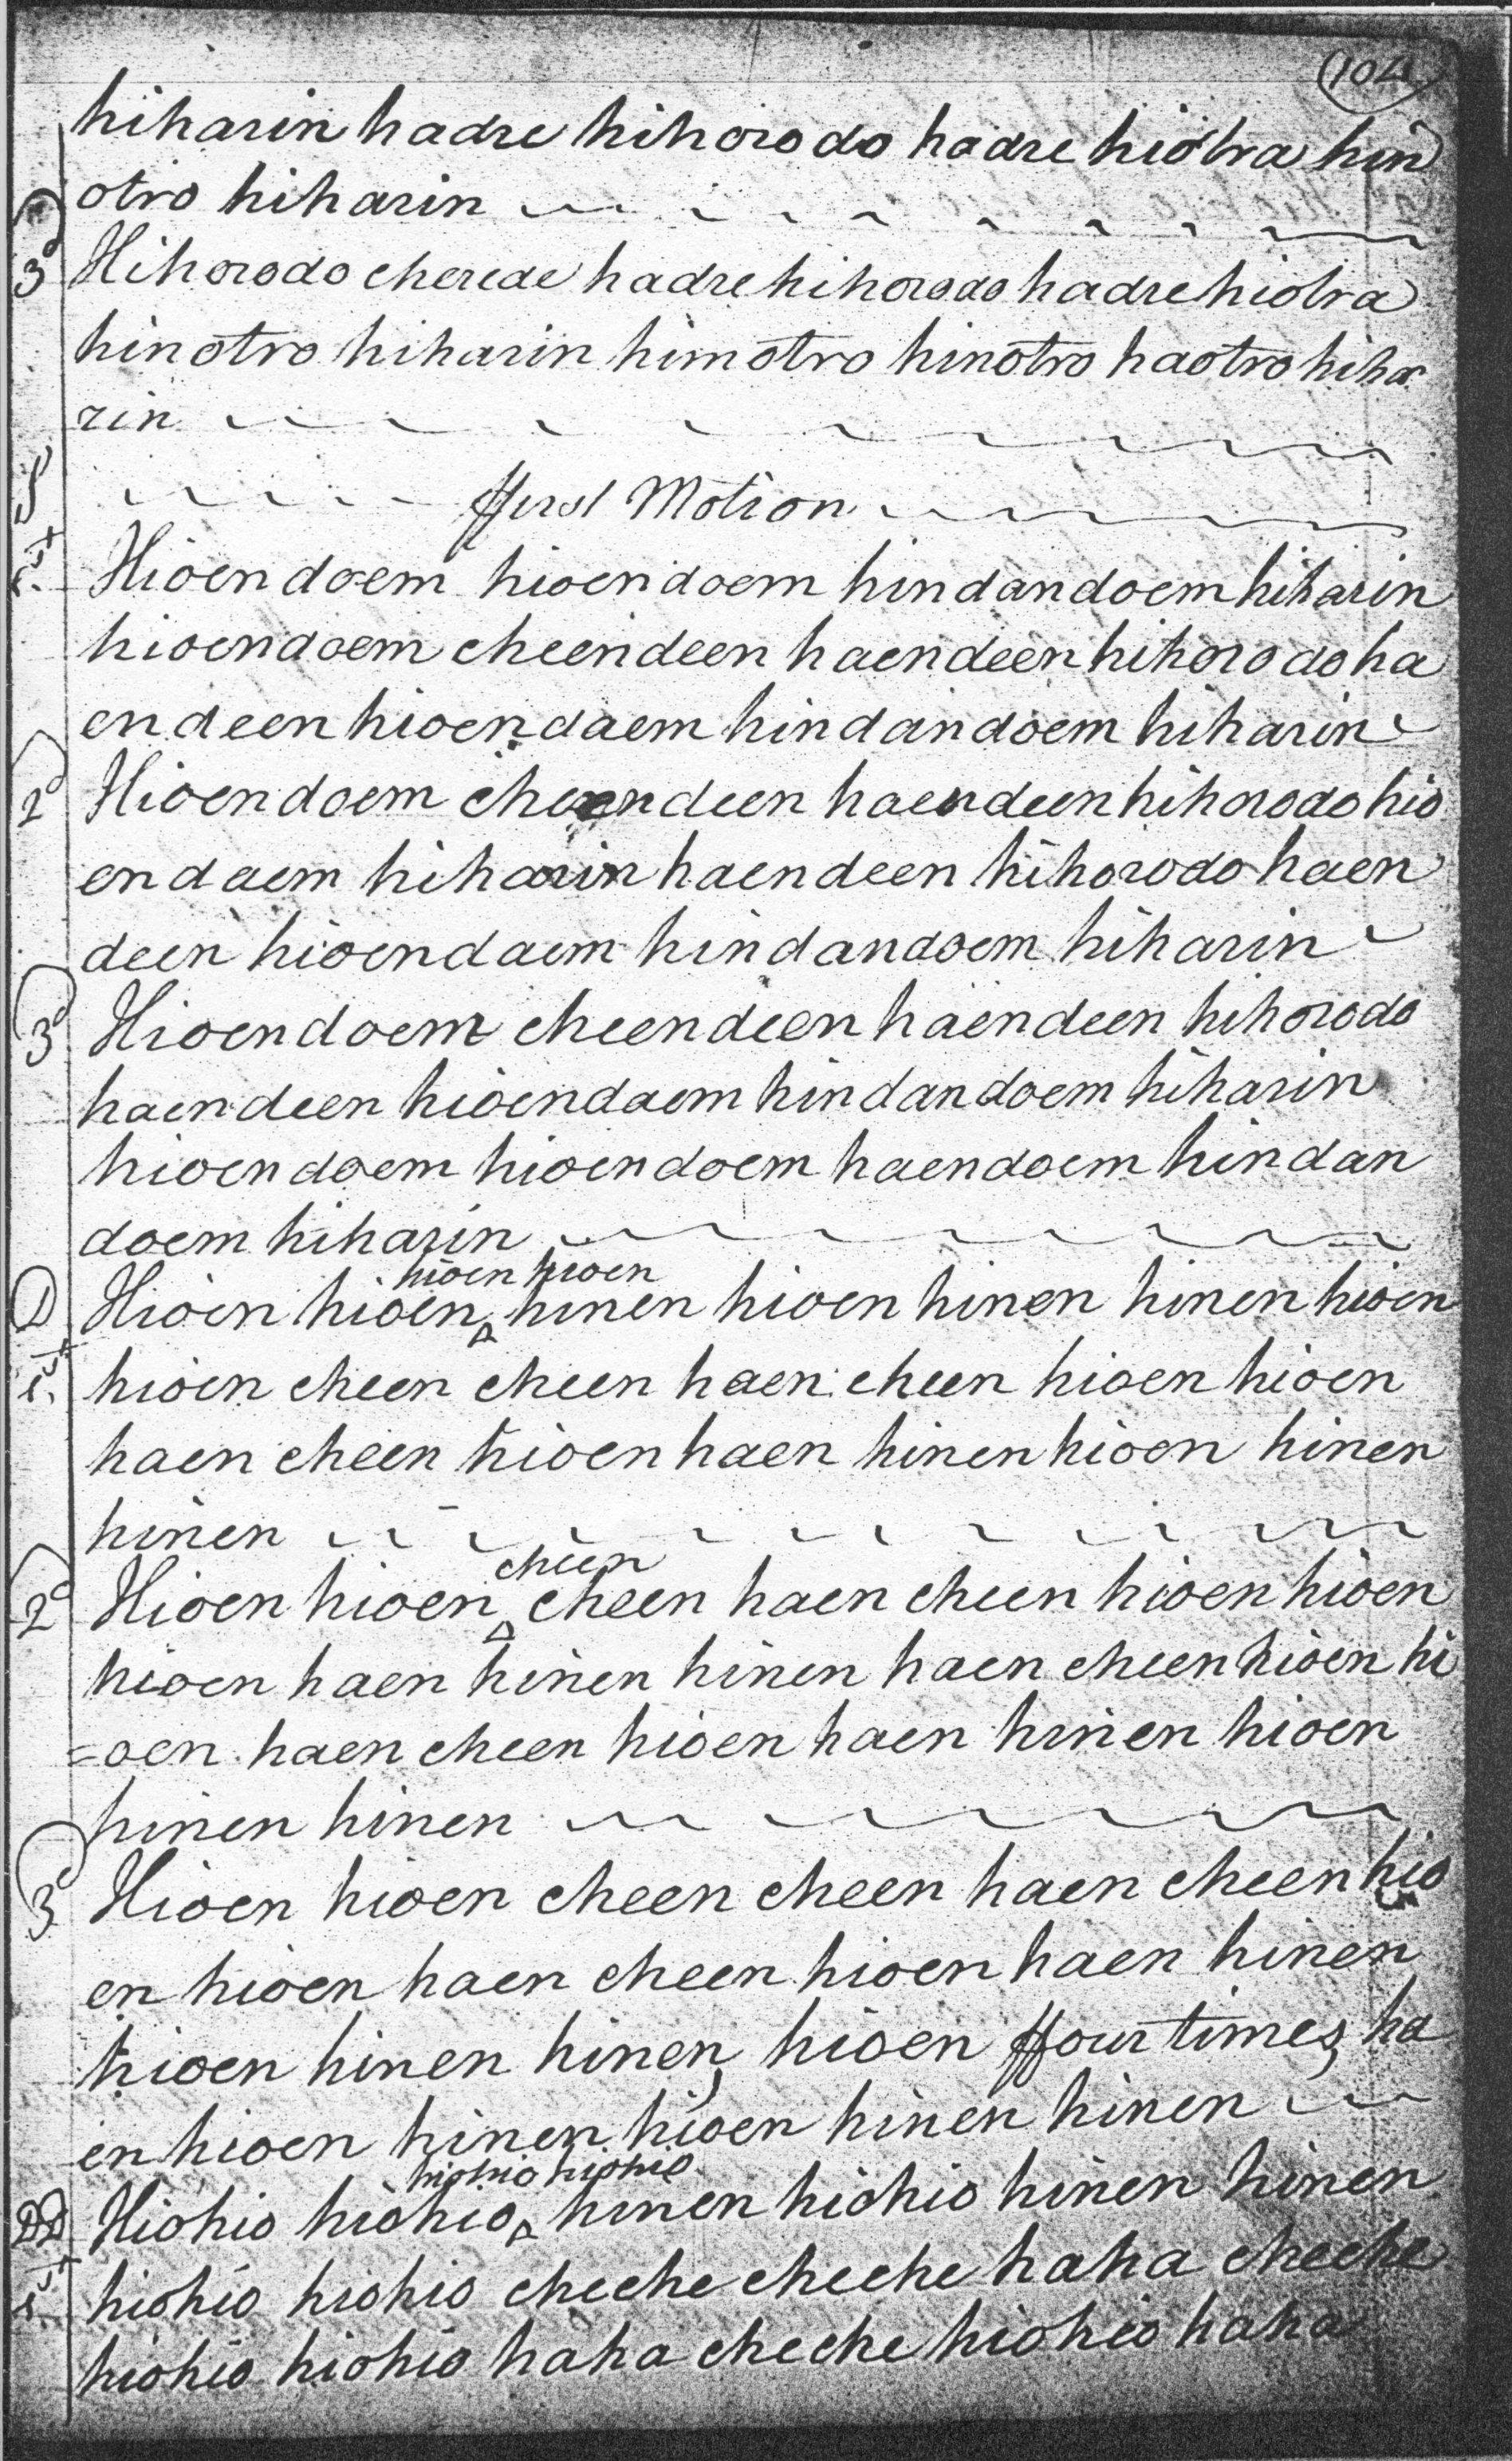 (104)
hiharin hadre hihorodo hadre hiotra hin
otro hiharin
3d Hihorodo cherede hadre hihorodo hadre hiotra
hinotro hiharin himotro hinotro haotro hiha
rin
ffirst Motion
Hioendoem hioendoem hindandoem hiharin
hioendoem cheendeen haendeen hihorodo ha
endeen hioendaem hindandoem hiharin
2d Hioendoem cheendeen haendeen hihorodo hio
endaem hiharin haendeen hihorodo haen
deen hioendaem hindandoem hiharin
3d Hioendoem cheendeen haendeen hihorodo
haendeen hioendaem hindandoem hiharin
hioendoem hioendoem haendoem hindan
doem hiharin
hioen hioen
D Hioen hioen hinen hioen hinen hinen hioen
hioen cheen cheen haen cheen hioen hioen
haen cheen hioen haen hinen hioen hinen
hinen
cheen
2d Hioen hioen cheen haen cheen hioen hioen
hioen haen hinen hinen haen cheen hioen hi
=oen haen cheen hioen haen hinen hioen
hinen hinen
3d Hioen hioen cheen cheen haen cheen hio
en hioen haen cheen hioen haen hinen
hioen hinen hinen, hioen ffour times, ha
en hioen hinen hioen hinen hinen
hiohio hiohio
DD Hiohio hiohio hinen hiohio hinen hinen
hiohio hiohio cheche cheche haha cheche
hiohio hiohio haha cheche hiohio haha